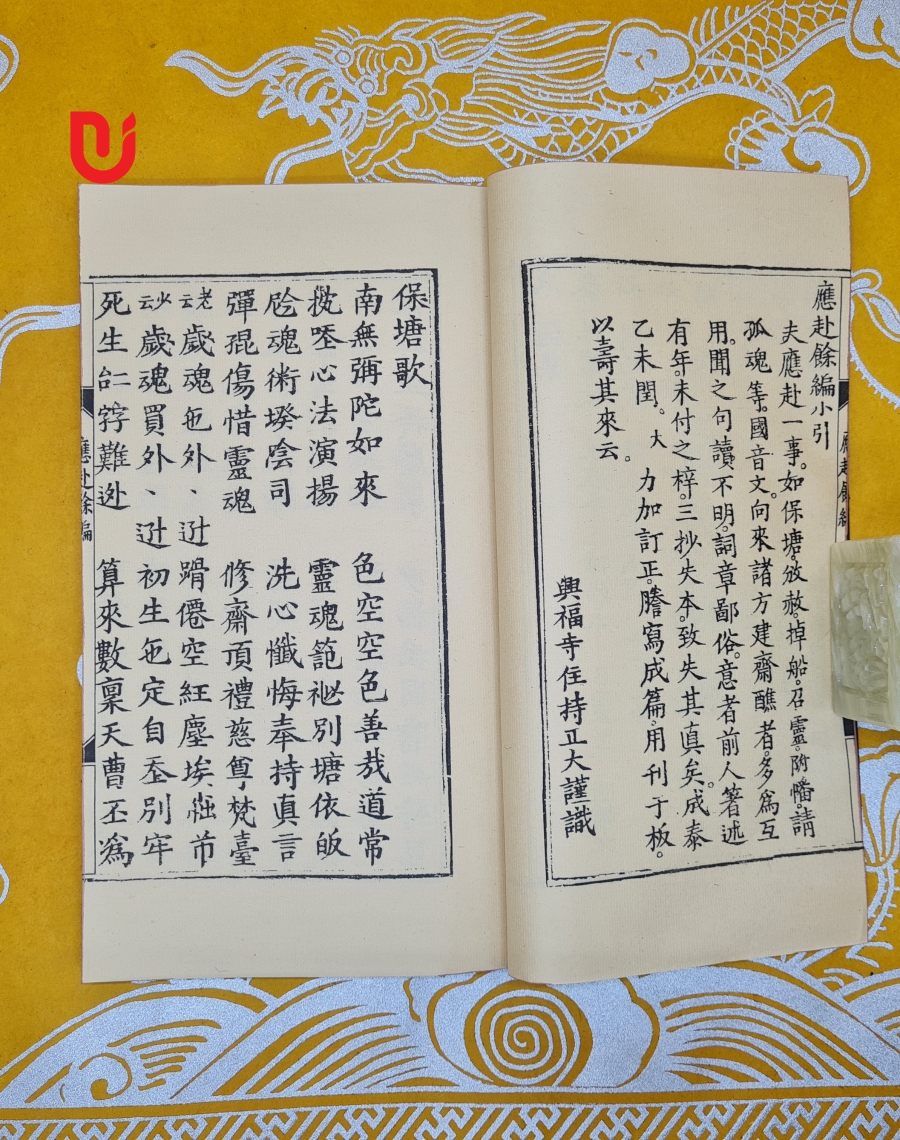 應赴餘編小引
夫應赴一事。如保塘。放赦。掉船。召靈。附幡。請
孤魂等。國音文。向來諸方建齋醮者。多為互
用。聞之句讀不明。詞章鄙俗。意者前人著述
有年。未付之梓。三抄失本。致失其真矣。成泰
乙未閏。大力加訂正。謄寫成篇。用刊于板。
以壽其來云。
興福寺住持正大謹識
應赴餘編
保塘歌
南無彌陀如來 色空空色善哉道常
心法演揚 靈魂 別塘依皈
魂術 陰司 洗心懺悔奉持真言
彈 傷惜靈魂 修齋頂禮慈尊梵臺
老云歲魂 外、 僊空紅塵埃 市
少云歲魂買外、 初生 定自 別牢
死生 難 算來數稟天曹丕為
應赴餘編